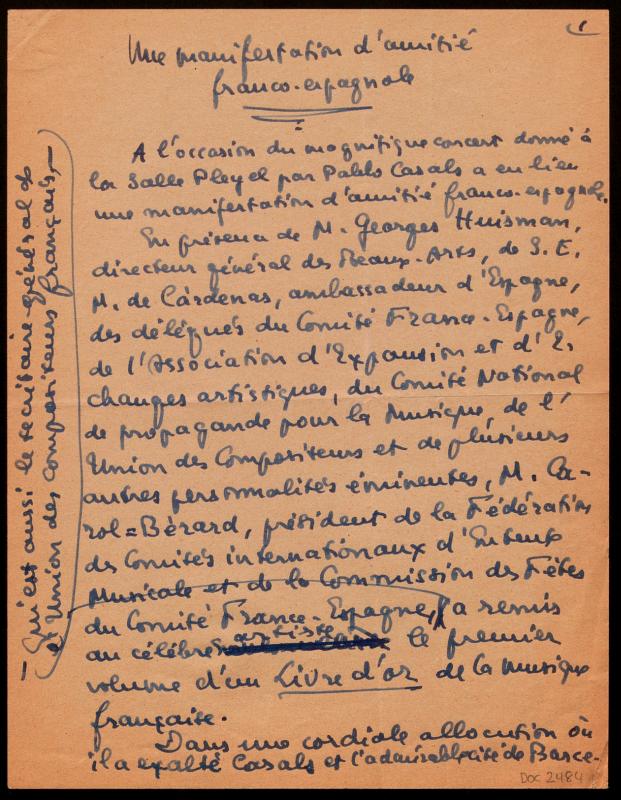 1
Une manifestation d'amitié
franco-espagnole
A l'occasion du magnifique concert donné à
la Salle Pleyel par Pablo Casals a eu lieu
une manifestation d'amitié franco-espagnole.
En présence de M. Georges Huisman,
directeur général des Beaux-Arts, de S. E.
M. de Cárdenas, ambassadeur d'Espagne,
des délégués du Comité France-Espagne,
de l'Association d'Expansion et d'E-
changes artistiques, du Comité National
de propagande pour la Musique, de l'
Union des Compositeurs et de plusieurs
autres personnalités éminentes, M. Ca-
rol=Bérard, président de la Fédération
des Comités internationaux d'Entente
Musicale et de la Commission des Fêtes
du Comité France-Espagne, a remis
au célèbre artiste le premier
volume d'un Livre d'or de la musique
française.
Dans une cordiale allocution où
il a exalté Casals et l'admirable cité de Barce-
— qui est aussi le secrétaire général de
l'Union des Compositeurs français, —
Doc 2484